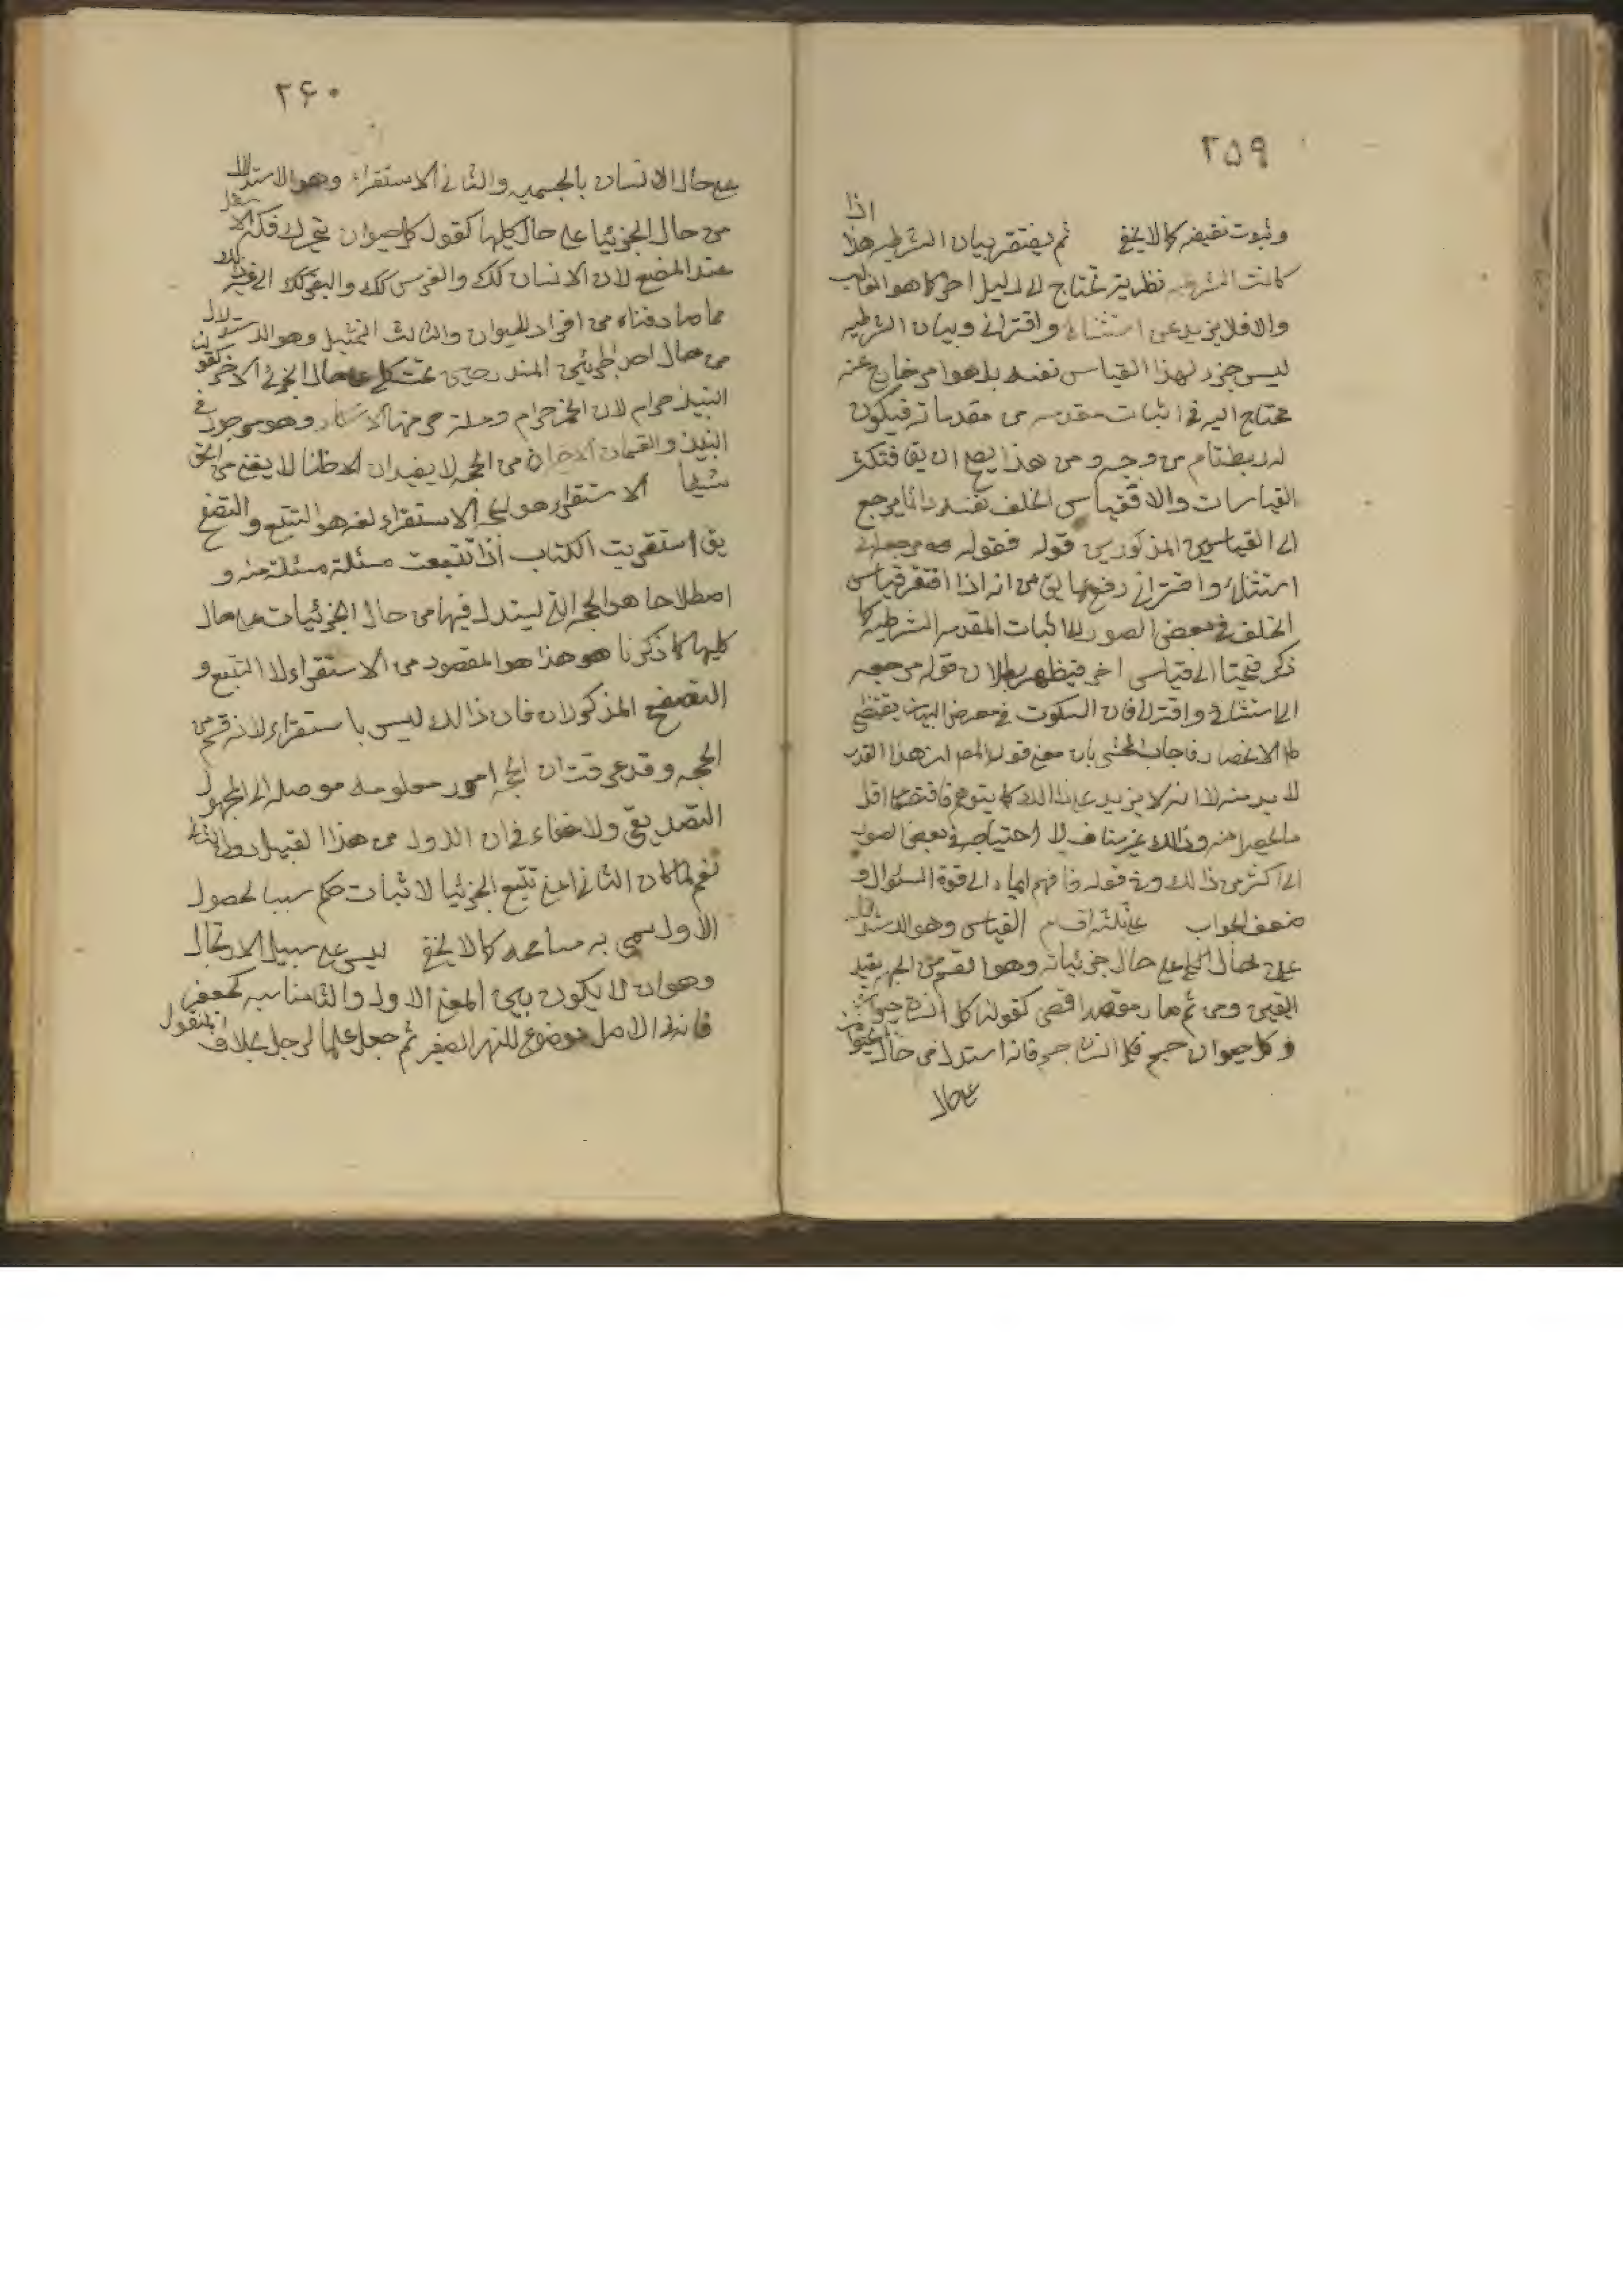 ٢۵٩
وثبوت نقيضه كما لا يخفى ثم يفتقر بيان الشرطيه هذا اذا
كانت الشرطيه نظرية تحتاج الى دليل اخر كما هو الغالب
والا فلا يزيد عن استثنائى واقترانى وبيان الشرطيه
ليس جزء لهذا القياس نفسه بل هو امر خارج عنه
محتاج اليه فى اثبات مقدمه من مقدماته فيكون
له ربط تام من وجه ومن هذا يصح ان يق فتكثر
القياسات والا فقياس الخلف نفسه دائما يرجع
الى القياسين المذكورين قوله فقوله مرجعه الى
استثنائى واقترانى رفع لما يق من انه اذا افتقر قياس
الخلف فى بعض الصور الى اثبات المقدمه الشرطيه كما
ذكر فيحتاج الى قياس اخر فيظهر بطلان قوله مرجعه
الى استثنائى واقترانى فان السكوت فى معرض البيان يقتضى
الانحصار فاجاب المحشى بان معنى قول المص ان هذا القدر
لا بد منه لا انه لا يزيد على ذالك كما يتوهم فاقتصر على اقل
ما يحصل منه وذالك غير مناف لا احتياجه فى بعض الصور
الى اكثر من ذالك وفى قوله فافهم ايماء الى قوة السئوال و
ضعف الجواب على ثلثة اقسام القياس وهو الاستدلال
على حال الكلى على حال جزئياته وهو القسم من الحجه يفيد
اليقين ومن ثم صار مقصدا اقصى كقولنا كل انسان حيوان
وكل حيوان جسم فكل انسان جسم فانه استدلال من حال الحيوان
على حال
٢۶٠
على حال الانسان بالجسميه والثانى الاستقراء وهو الاستدلال
من حال الجزئيا على حال كليها كقولك كل حيوان يتحرك فكه الاسفل
عند المضغ لان الانسان كك والفرس كك والبقر كك الى غير ذلك
مما صادفناه من افراد الحيوان والثالث التمثيل وهو الاستدلال
من حال احد الجزئيين المندرجين تحت كلى على حال الجزئى الاخر كقولنا
النبيذ حرام لان الخمر حرام وعلة حرمتها الاسكار وهو موجود فى
النبيذ والقسمان الاخيران من الحجه لا يفيدان الا ظنا لا يغنى من الحق
شيئا الاستقراء هو الحجه الاستقراء لغة هو التتبع والتصفح
يق استقريت الكتاب اذا تتبعت مسئلة مسئلة منه و
اصطلاحا هى الحجه التى يستدل فيها من حال الجزئيات على حال
كليها كما ذكرنا هو هذا هو المقصود من الاستقراء لا التتبع و
التصفح المذكوران فان ذالك ليس باستقراء لانه قسم من
الحجه وقد عرفت ان الحجه امور معلومه موصله الى المجهول
التصديقى ولا خفاء فى ان الاول من هذا القبيل دون الثانى
نعم لما كان الثانى اعنى تتبع الجزئيا لاثبات حكم سببا لحصول
الاول سمى به مسامحه كما لا يخفى ليس على سبيل الارتجال
وهو ان لا يكون بين المعنى الاول والثا مناسبه كجعفر
فانه فى الاصل موضوع للنهر الصغير ثم جعل علما لرجل بخلاف المنقول